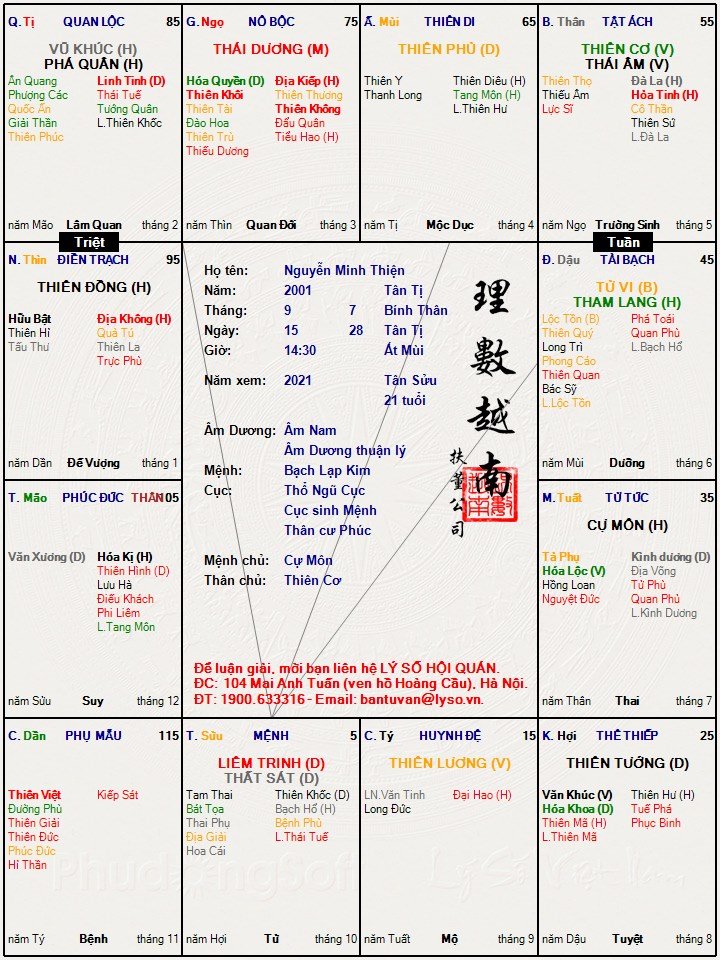 Q. Tị QUAN LỘC 85
VŨ KHÚC (H)
PHÁ QUÂN (H)
Ân Quang Linh Tinh (D)
Phượng Các Thái Tuế
Quốc Ấn Tướng Quân
Giải Thần L.Thiên Khốc
Thiên Phúc
năm Mão Lâm Quan tháng 2
G. Ngọ NÔ BỘC 75
THÁI DƯƠNG (M)
Hóa Quyền (D) Địa Kiếp (H)
Thiên Khôi Thiên Thương
Thiên Tài Thiên Không
Đào Hoa Đẩu Quân
Thiên Trù Tiểu Hao (H)
Thiếu Dương
năm Thìn Quan Đới tháng 3
Ấ. Mùi THIÊN DI 65
THIÊN PHỦ (D)
Thiên Y Thiên Diêu (H)
Thanh Long Tang Môn (H)
L.Thiên Hư
năm Tị Mộc Dục tháng 4
B. Thân TẬT ÁCH 55
THIÊN CƠ (V)
THÁI ÂM (V)
Thiên Thọ Đà La (H)
Thiếu Âm Hỏa Tinh (H)
Lực Sĩ Cô Thần
Thiên Sứ
L.Đà La
năm Ngọ Trường Sinh tháng 5
Triệt
Tuần
N. Thìn ĐIỀN TRẠCH 95
THIÊN ĐỒNG (H)
Hữu Bật Địa Không (H)
Thiên Hỉ Quả Tú
Tấu Thư Thiên La
Trực Phù
năm Dần Đế Vượng tháng 1
Họ tên: Nguyễn Minh Thiện
Năm: 2001 Tân Tị
Tháng: 9 7 Bính Thân
Ngày: 15 28 Tân Tị
Giờ: 14:30 Ất Mùi
Năm xem: 2021 Tân Sửu
21 tuổi
Âm Dương: Âm Nam
Âm Dương thuận lý
Mệnh: Bạch Lạp Kim
Cục: Thổ Ngũ Cục
Cục sinh Mệnh
Thân cư Phúc
Mệnh chủ: Cự Môn
Thân chủ: Thiên Cơ
理數越南
扶董公司
Để luận giải, mời bạn liên hệ LÝ SỐ HỘI QUÁN.
ĐC: 104 Mai Anh Tuấn (ven hồ Hoàng Cầu), Hà Nội.
ĐT: 1900.633316 - Email: bantuvan@lyso.vn.
Đ. Dậu TÀI BẠCH 45
TỬ VI (B)
THAM LANG (H)
Lộc Tồn (B) Phá Toái
Thiên Quý Quan Phù
Long Trì L.Bạch Hổ
Phong Cáo
Thiên Quan
Bác Sỹ
L.Lộc Tồn
năm Mùi Dưỡng tháng 6
T. Mão PHÚC ĐỨC THÂN 105
Văn Xương (D) Hóa Kị (H)
Thiên Hình (D)
Lưu Hà
Điếu Khách
Phi Liêm
L.Tang Môn
năm Sửu Suy tháng 12
M. Tuất TỬ TỨC 35
CỰ MÔN (H)
Tả Phụ Kình dương (D)
Hóa Lộc (V) Địa Võng
Hồng Loan Tử Phù
Nguyệt Đức Quan Phủ
L.Kình Dương
năm Thân Thai tháng 7
C. Dần PHỤ MẪU 115
Thiên Việt Kiếp Sát
Đường Phù
Thiên Giải
Thiên Đức
Phúc Đức
Hỉ Thần
năm Tý Bệnh tháng 11
T. Sửu MỆNH 5
LIÊM TRINH (D)
THẤT SÁT (D)
Tam Thai Thiên Khốc (D)
Bát Tọa Bạch Hổ (H)
Thai Phụ Bệnh Phù
Địa Giải L.Thái Tuế
Hoa Cái
năm Hợi Tử tháng 10
C. Tý HUYNH ĐỆ 15
THIÊN LƯƠNG (V)
LN.Văn Tinh Đại Hao (H)
Long Đức
năm Tuất Mộ tháng 9
K. Hợi THÊ THIẾP 25
THIÊN TƯỚNG (D)
Văn Khúc (V) Thiên Hư (H)
Hóa Khoa (D) Tuế Phá
Thiên Mã (H) Phục Binh
L.Thiên Mã
năm Dậu Tuyệt tháng 8